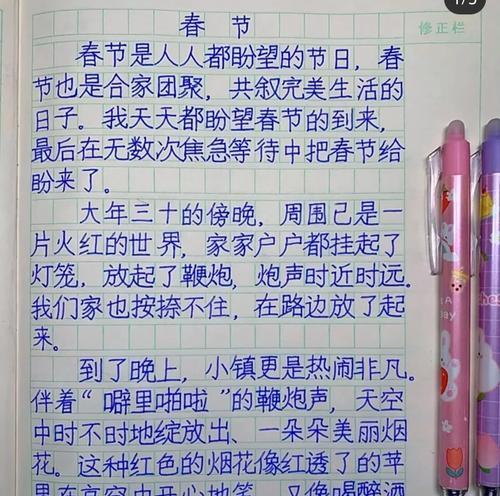 1/5
修正栏
春节
春节是人人都盼望的节日，春
节也是合家团聚，共叙完美生活的
日子。我天天都盼望春节的到来，
最后在无数次焦急等待中把春节给
盼来了。
大年三十的傍晚，周围已是一
片火红的世界，家家户户都挂起了
灯笼，放起了鞭炮，炮声时近时远。
我们家也按捺不住，在路边放了起
来。
到了晚上，小镇更是热闹非凡。
伴着“噼里啪啦”的鞭炮声，天空
中时不时地绽放出、一朵朵美丽烟
花。这种红色的烟花像红透了的苹
果在高空中开心地笑，又像喝醉酒